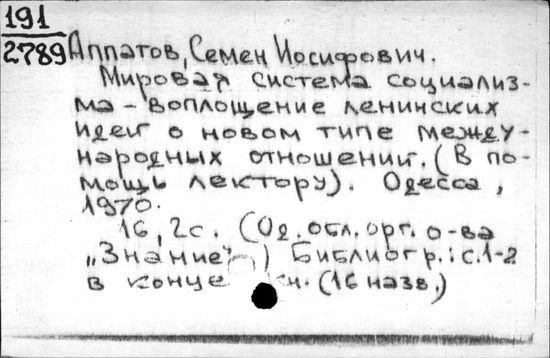 191
2789 Аппатов, Семен Иосифович.
Мировая система социализ-
ма - воплощение ленинских
идей о новом типе между-
народных отношений. (В по-
мощь лектору). Одесса,
1970.
16, 2с. (Од. обл. орг. о-ва
„Знание") Библиогр.: с. 1-2
в конце кн. (16 назв.)